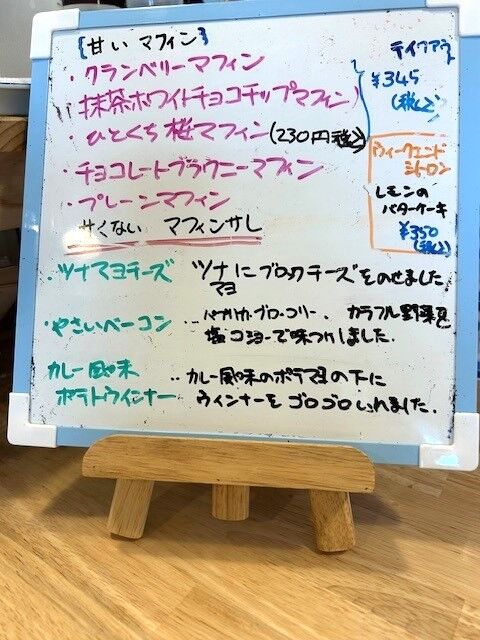 [甘い マフィン]
・クランベリーマフィン
・抹茶ホワイトチョコチップマフィン
・ひとくち桜マフィン(230円税込)
・チョコレートブラウニーマフィン
・プレーンマフィン
テイクアウト
¥345
(税込)
ウィークエンド
シトロン
レモンの
バターケーキ
¥350
(税込)
甘くない マフィンサレ
・ツナマヨチーズ ツナマヨにブロックチーズをのせました
・やさいベーコン ...パプリカ、ブロッコリー、カラフル野菜
塩コショーで味つけしました.
カレー風味
ポテトウインナー ...カレー風味のポテサラの下に
ウィンナーをゴロゴロいれました.